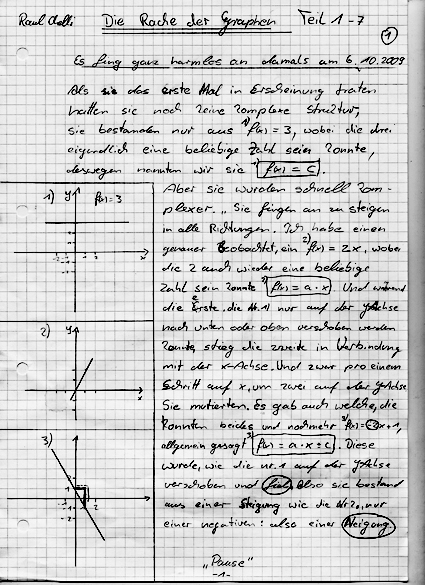 Raul Chelli Die Rache der Graphen Teil 1-7
1
Es fing ganz harmlos an damals am 6.10.2009
Als sie das erste Mal in Erscheinung traten
hatten sie noch keine komplexe Struktur,
sie bestanden nur aus 1) f(x) = 3, wobei die drei
eigendlich eine beliebige Zahl sein konnte,
deswegen nannten wir sie 1) f(x) = c.
1) y f(x)=3
x
Aber sie wurden schnell kom-
plexer. Sie fingen an zu steigen
in alle Richtungen. Ich habe einen
genauer Beobachtet, ein 2) f(x) = 2x, wobei
die 2 auch wieder eine beliebige
Zahl sein konnte 2) f(x) = a·x. Und während
die Erste, die Nr.1) nur auf der y-Achse
nach unten oder oben verschoben werden
konnte, stieg die zweite in Verbindung
mit der x-Achse. Und zwar pro einem
Schritt auf x, um zwei auf der y-Achse
2) y
x
Sie mutierten. Es gab auch welche, die
konnten beides und noch mehr 3) f(x)=-2x+1,
allgemein gesagt 3) f(x) = a·x±c. Diese
wurde, wie die Nr.1 auf der y-Achse
verschoben und fiel. Also sie bestand
aus einer Steigung wie die Nr 2, nur
einer negativen: also einer Neigung.
3)
1
-1
-2
x
„Pause"
-1-